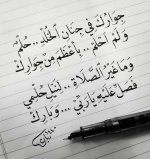 جوارك في جنان الخلد .. حلم
ولم أحلم .. بأعظم من جوارك
وما غير الصلاة .. لنيل حلمي
فصل عليه يا ربي ... وبارك